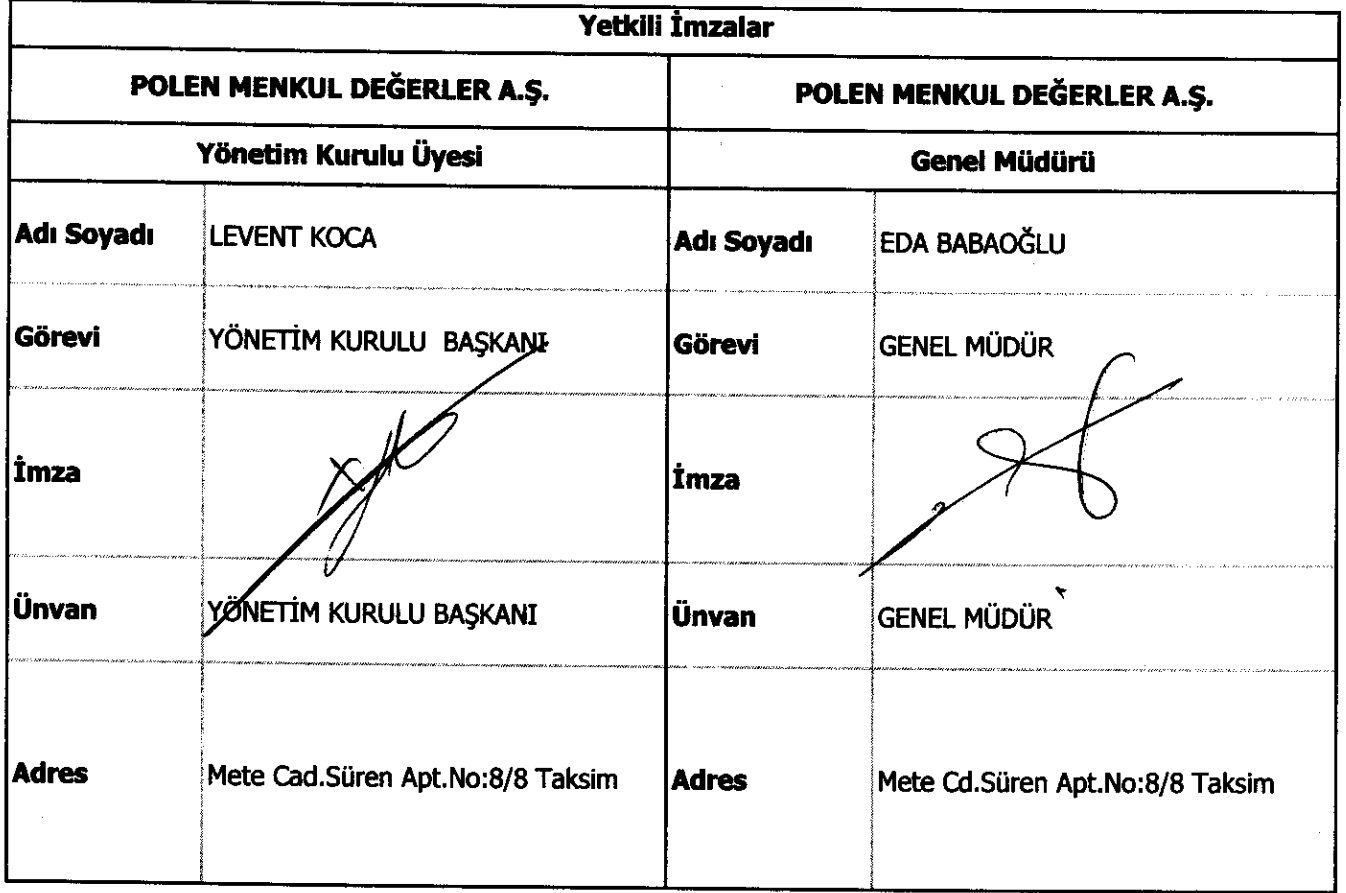 Yetkili İmzalar
POLEN MENKUL DEĞERLER A.Ş. POLEN MENKUL DEĞERLER A.Ş.
Yönetim Kurulu Üyesi Genel Müdürü
Adı Soyadı LEVENT KOCA Adı Soyadı EDA BABAOĞLU
Görevi YÖNETİM KURULU BAŞKANI Görevi GENEL MÜDÜR
İmza İmza
Ünvan YÖNETİM KURULU BAŞKANI Ünvan GENEL MÜDÜR
Adres Mete Cad.Süren Apt.No:8/8 Taksim Adres Mete Cd.Süren Apt.No:8/8 Taksim